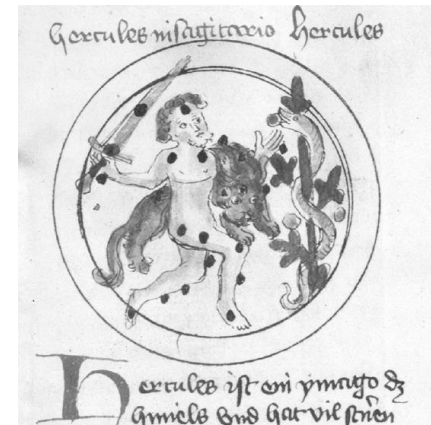 Hercules in sagittario Hercules
Hercules ist ein ymago dz
himels vnd hat vil stern